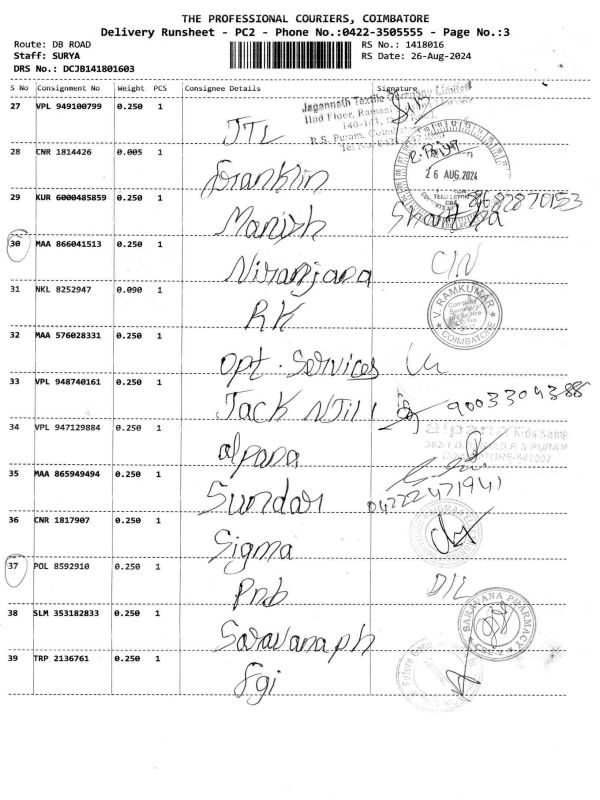 THE PROFESSIONAL COURIERS, COIMBATORE
Delivery Runsheet - PC2 - Phone No.:0422-3505555 - Page No.:3
Route: DB ROAD RS No.: 1418016
Staff: SURYA RS Date: 26-Aug-2024
DRS No.: DCJB141801603
S No Consignment No Weight PCS Consignee Details Signature
27 VPL 949100799 0.250 1
Jagannath Textile Company Limited
IInd Floor,
R.S. Puram,
JTL
28 CNR 1814426 0.005 1
R. Priya
26 AUG 2024
Franklin
29 KUR 6000485859 0.250 1
Manish
30 MAA 866041513 0.250 1 C/N
Niranjana
31 NKL 8252947 0.090 1
V. RAMKUMAR
COIMBATORE
RK
32 MAA 576028331 0.250 1
opt. Services
33 VPL 948740161 0.250 1
Jack NJil 9003309388
34 VPL 947129884 0.250 1
alpana Kids Kemp
R S PURAM
alpana
35 MAA 865949494 0.250 1
04222471941
Sundar
36 CNR 1817907 0.250 1
Sigma
37 POL 8592910 0.250 1 D/L
Pnb
38 SLM 353182833 0.250 1
SARAVANA PHARMACY
CBE-2
Saravana ph
39 TRP 2136761 0.250 1
Future
Fgi